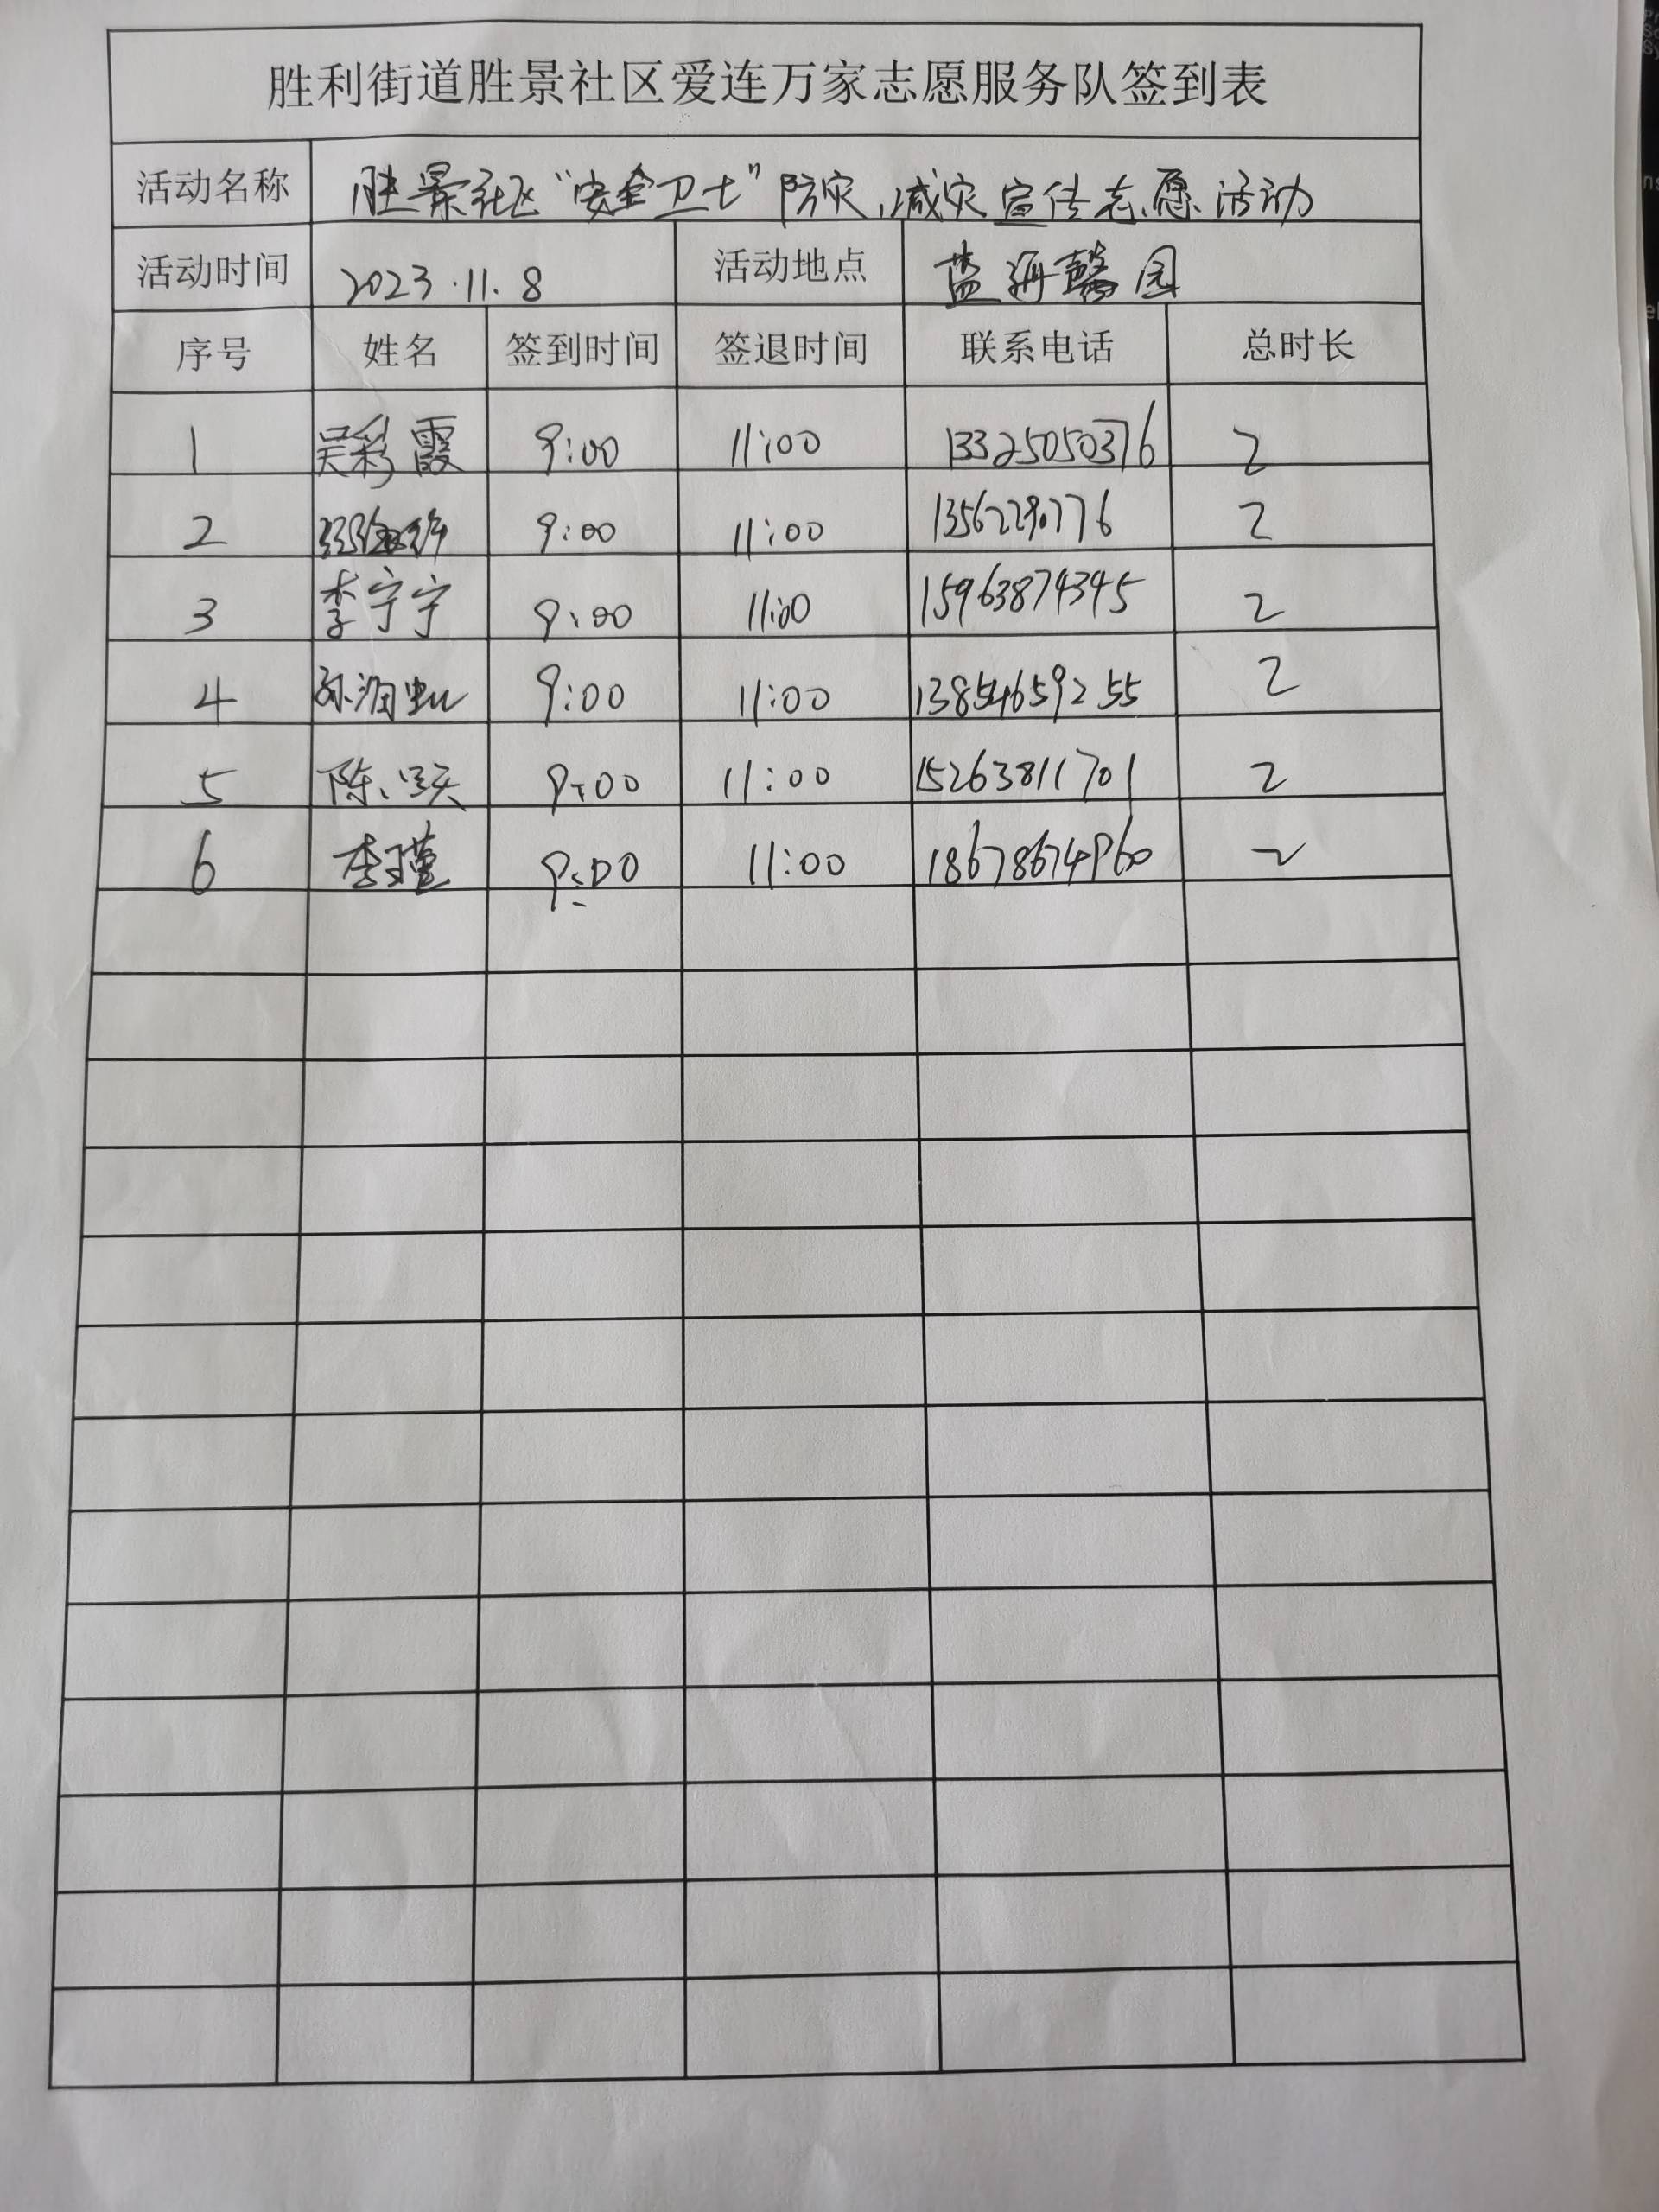 胜利街道胜景社区爱连万家志愿服务队签到表
活动名称 胜景社区“安全卫士”防灾、减灾宣传志愿活动
活动时间 2023.11.8 活动地点 蓝海馨园
序号 姓名 签到时间 签退时间 联系电话 总时长
1 吴彩霞 9:00 11:00 13325050376 2
2 9:00 11:00 2
3 李宁宁 9:00 11:00 15963874345 2
4 孙润虹 9:00 11:00 13854659255 2
5 陈 9:00 11:00 15263811701 2
6 李瑾 9:00 11:00 18678674960 2